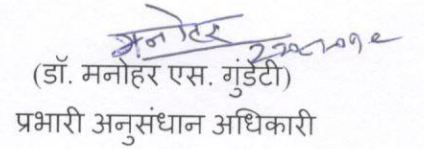 मनोहर
(डॉ. मनोहर एस. गुंडेटी)
प्रभारी अनुसंधान अधिकारी